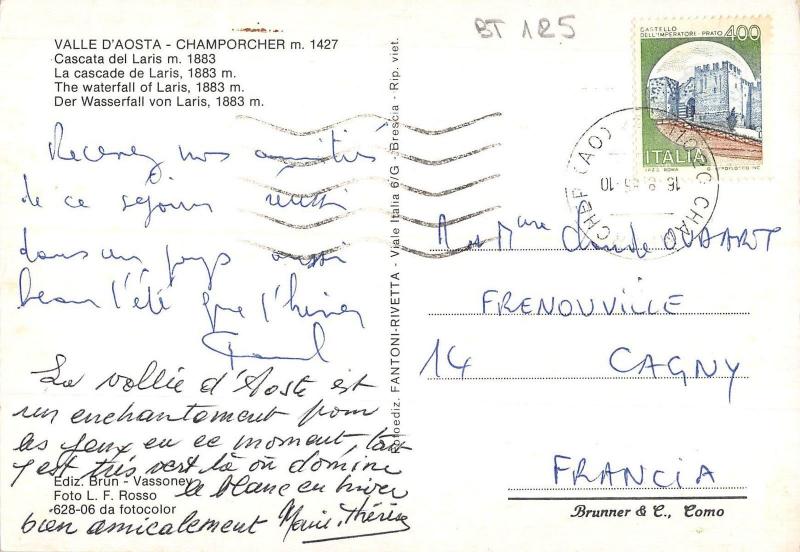 BT 125
VALLE D'AOSTA - CHAMPORCHER m. 1427
Cascata del Laris m. 1883
La cascade de Laris, 1883 m.
The waterfall of Laris, 1883 m.
Der Wasserfall von Laris, 1883 m.
Recevez nos amitiés
de ce séjour réussi
dans un pays aussi
beau l'été que l'hiver
La vallée d'Aoste est
un enchantement pour
les yeux en ce moment, tout
y est très vert là où domine
le blanc en hiver
bien amicalement Marie-Thérèse
Ediz. Brun - Vassoney
Foto L. F. Rosso
628-06 da fotocolor
Fotoediz. FANTONI-RIVETTA - Viale Italia 6/G - Brescia - Rip. viet.
CASTELLO
DELL'IMPERATORE - PRATO 400
ITALIA
I.P.Z.S. ROMA
CHAMPORCHER (AO)
M et Mme Claude OUDART
FRENOUVILLE
14 CAGNY
FRANCIA
Brunner & C., Como